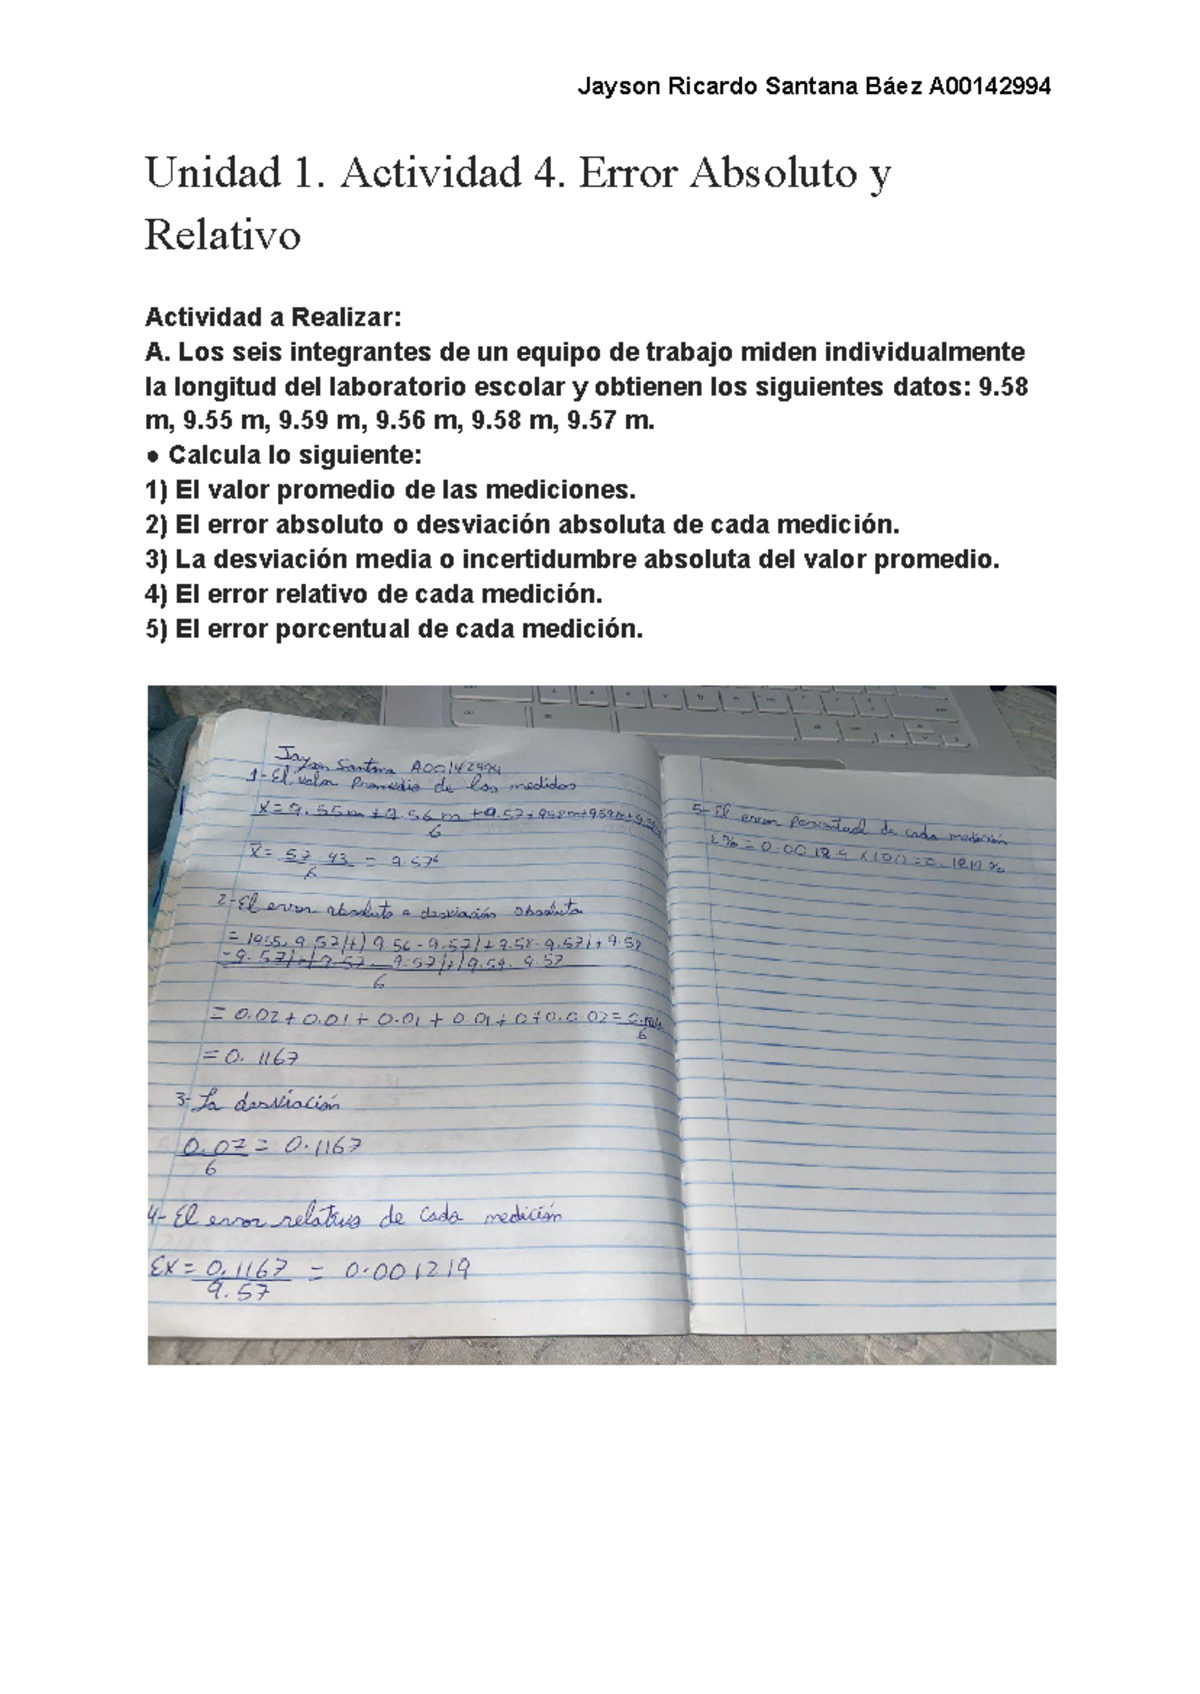 Jayson Ricardo Santana Báez A00142994
Unidad 1. Actividad 4. Error Absoluto y
Relativo
Actividad a Realizar:
A. Los seis integrantes de un equipo de trabajo miden individualmente
la longitud del laboratorio escolar y obtienen los siguientes datos: 9.58
m, 9.55 m, 9.59 m, 9.56 m, 9.58 m, 9.57 m.
● Calcula lo siguiente:
1) El valor promedio de las mediciones.
2) El error absoluto o desviación absoluta de cada medición.
3) La desviación media o incertidumbre absoluta del valor promedio.
4) El error relativo de cada medición.
5) El error porcentual de cada medición.
Jayson Santana A00142994
1-El valor Promedio de las medidas
X=9.55m+9.56m+9.57+958m+958m+
6
X̄= 57.43 = 9.57
6
2-El error absoluto o desviación absoluta
9.57|+|9.56-9.57|+9.58-9.57|+9.58
-9.57|+|9.57-9.57|+|9.59-9.57
6
=0.02+0.01+0.01+0.01+0+0.0 02=
6
=0.1167
3-La desviación
0.07 = 0.1167
6
4-El error relativo de cada medición
EX= 0.1167 = 0.001219
9.57
5-El error porcentual de cada medición